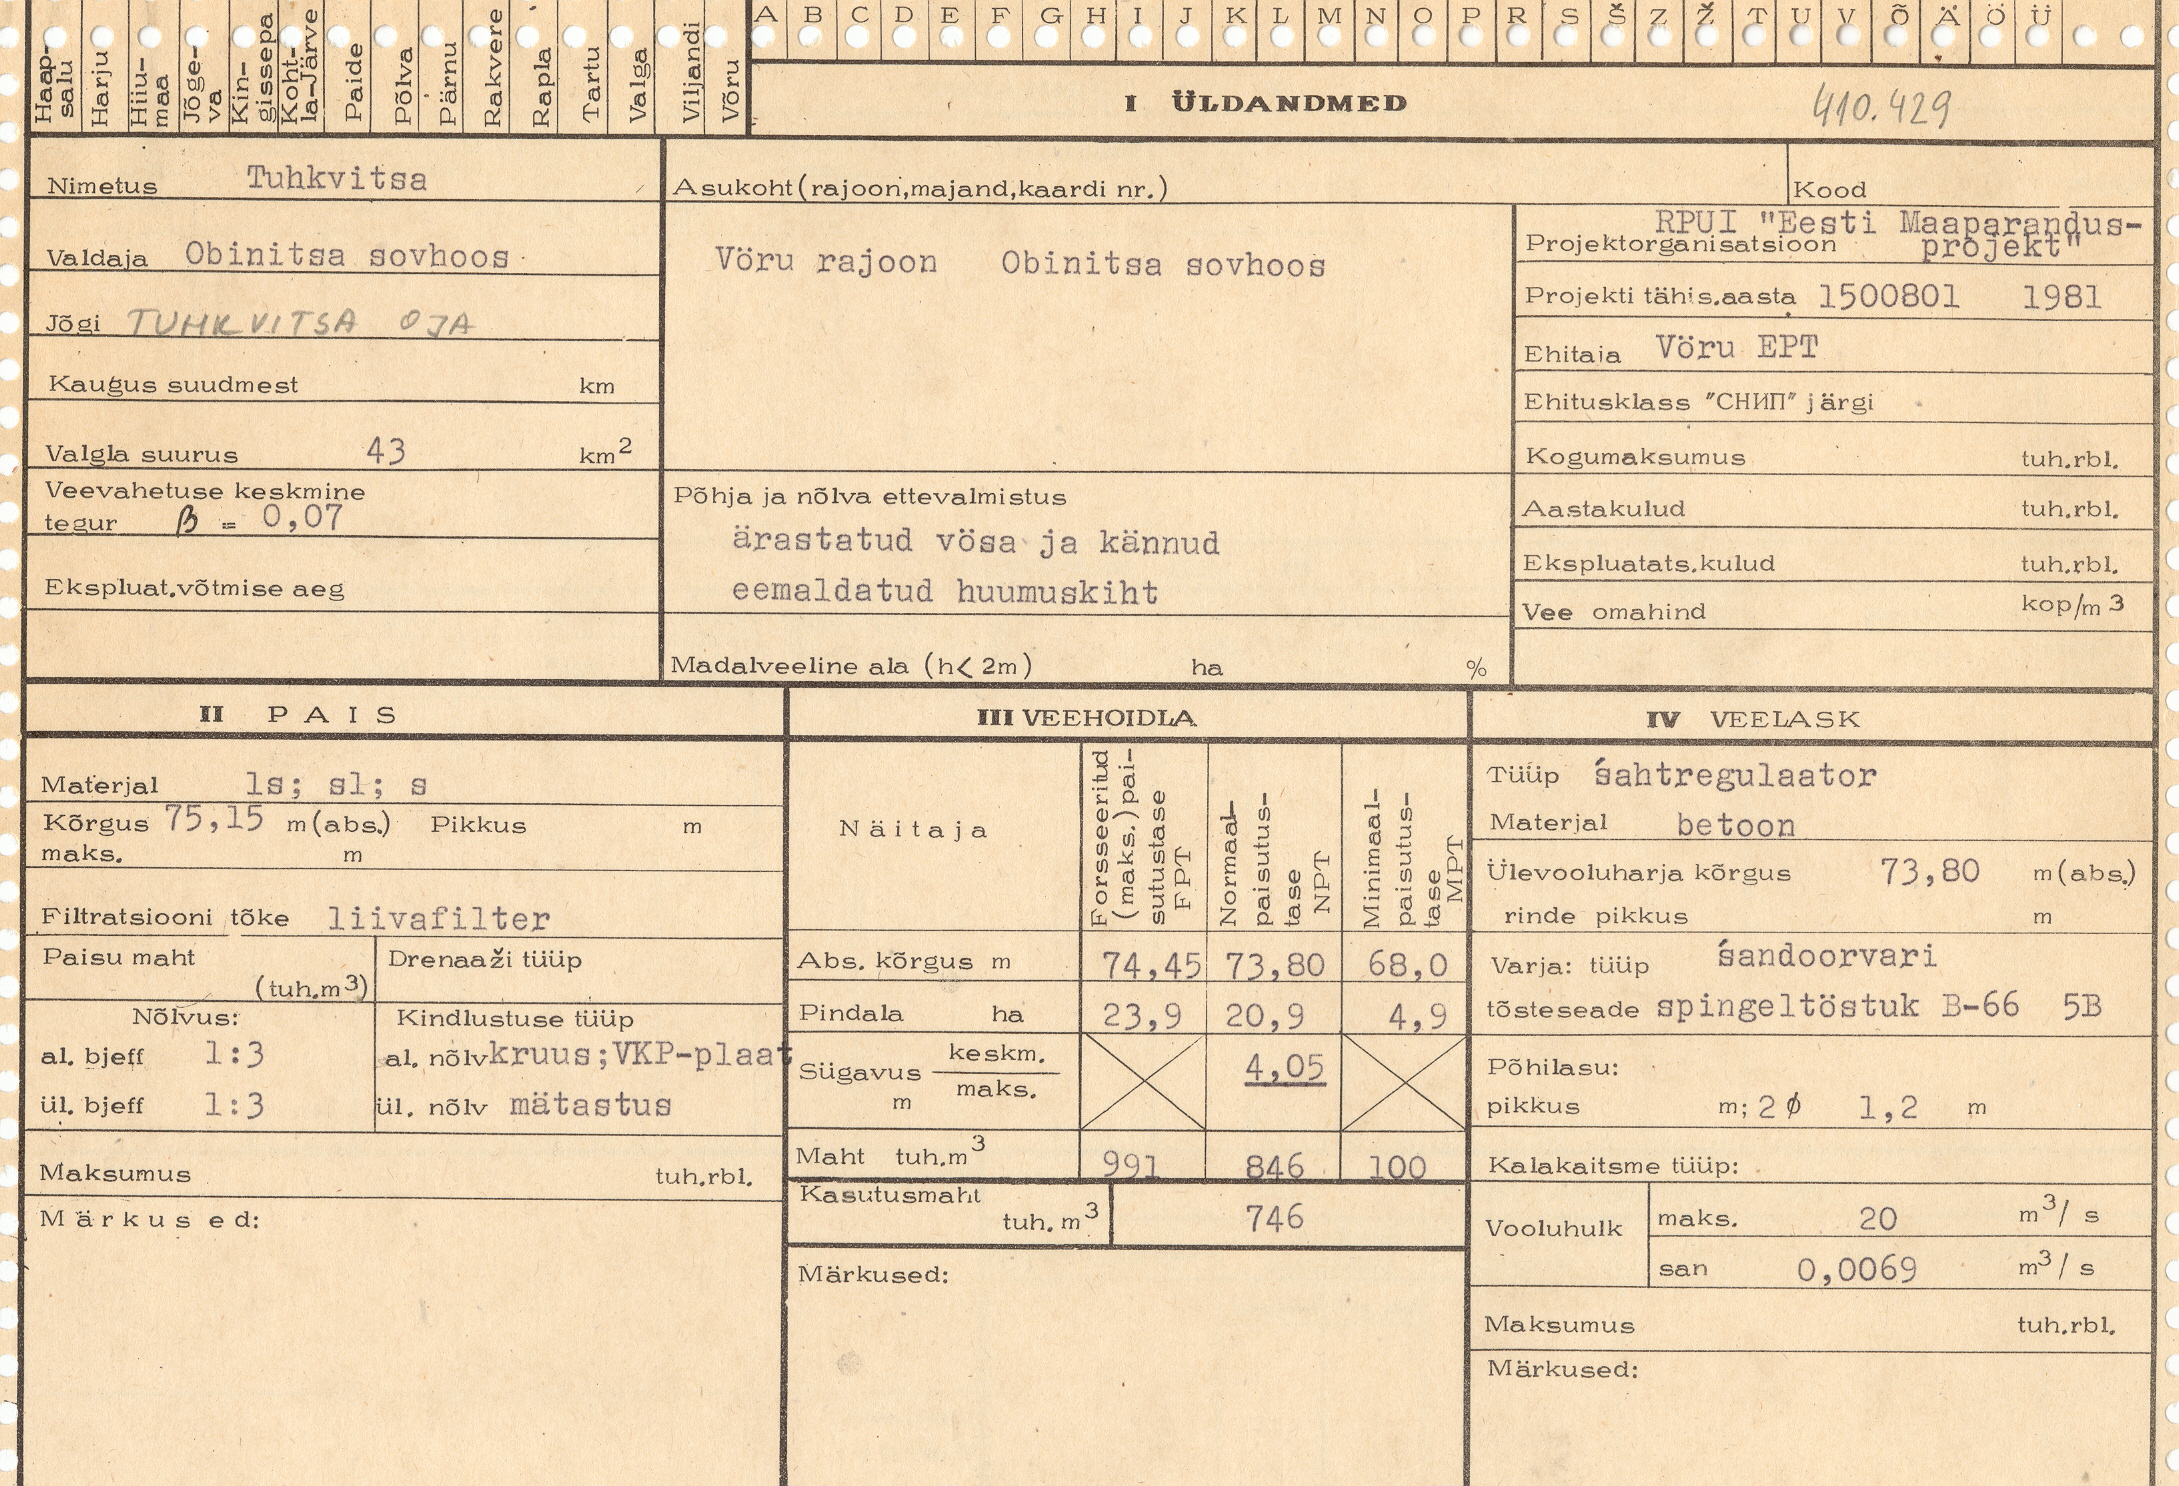 A B C D E F G H I J K L M N O P R S Š Z Ž T U V Õ Ä Ö Ü
Haap-
salu
Harju
Hiiu-
maa
Jõge-
va
Kin-
gissepa
Koht-
la-Järve
Paide
Põlva
Pärnu
Rakvere
Rapla
Tartu
Valga
Viljandi
Võru
I ÜLDANDMED 410.429
Nimetus Tuhkvitsa
Valdaja Obinitsa sovhoos
Jõgi TUHKVITSA OJA
Kaugus suudmest km
Valgla suurus 43 km2
Veevahetuse keskmine
tegur β = 0,07
Ekspluat.võtmise aeg
Asukoht(rajoon,majand,kaardi nr.)
Vöru rajoon Obinitsa sovhoos
Põhja ja nõlva ettevalmistus
ärastatud vösa ja kännud
eemaldatud huumuskiht
Madalveeline ala (h< 2m) ha %
Kood
RPUI "Eesti Maaparandus-
Projektorganisatsioon projekt"
Projekti tähis.aasta 1500801 1981
Ehitaja Vöru EPT
Ehitusklass "СНИП" järgi
Kogumaksumus tuh.rbl.
Aastakulud tuh.rbl.
Ekspluatats.kulud tuh.rbl.
Vee omahind kop/m3
II PAIS
Materjal ls; sl; s
Kõrgus 75,15 m(abs.) Pikkus m
maks. m
Filtratsiooni tõke liivafilter
Paisu maht
(tuh.m3)
Drenaaži tüüp
Nõlvus:
al. bjeff 1:3
ül. bjeff 1:3
Kindlustuse tüüp
al. nõlv kruus;VKP-plaat
ül. nõlv mätastus
Maksumus tuh.rbl.
Märkused:
III VEEHOIDLA
Näitaja
Forsseeritud
(maks.)pai-
sutustase
FPT
Normaal-
paisutus-
tase
NPT
Minimaal-
paisutus-
tase
MPT
Abs. kõrgus m 74,45 73,80 68,0
Pindala ha 23,9 20,9 4,9
Sügavus keskm. 4,05
m maks.
Maht tuh.m3 991 846 100
Kasutusmaht
tuh. m3 746
Märkused:
IV VEELASK
Tüüp śahtregulaator
Materjal betoon
Ülevooluharja kõrgus 73,80 m(abs.)
rinde pikkus m
Varja: tüüp śandoorvari
tõsteseade spingeltöstuk B-66 5B
Põhilasu:
pikkus m; 2 ϕ 1,2 m
Kalakaitsme tüüp:
Vooluhulk
maks. 20 m3/ s
san 0,0069 m3/ s
Maksumus tuh.rbl.
Märkused: